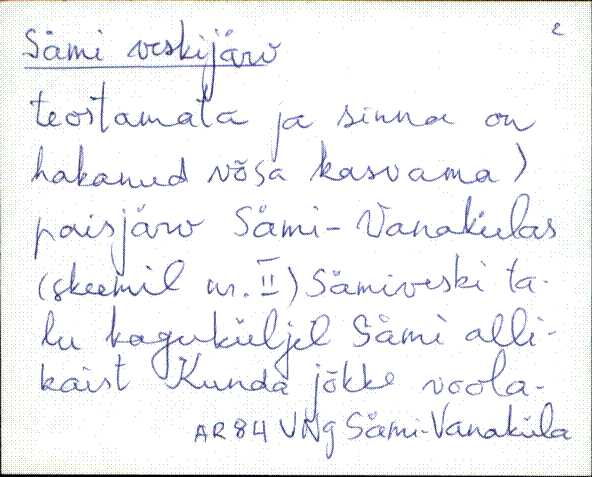 2
Sämi veskijärv
teostamata ja sinna on
hakanud võsa kasvama)
paisjärv Sämi-Vanakülas
(skeemil nr. II) Sämiveski ta-
lu kaguküljel Sämi alli-
kaist Kunda jõkke voola-
AR 84 VNg Sämi-Vanaküla